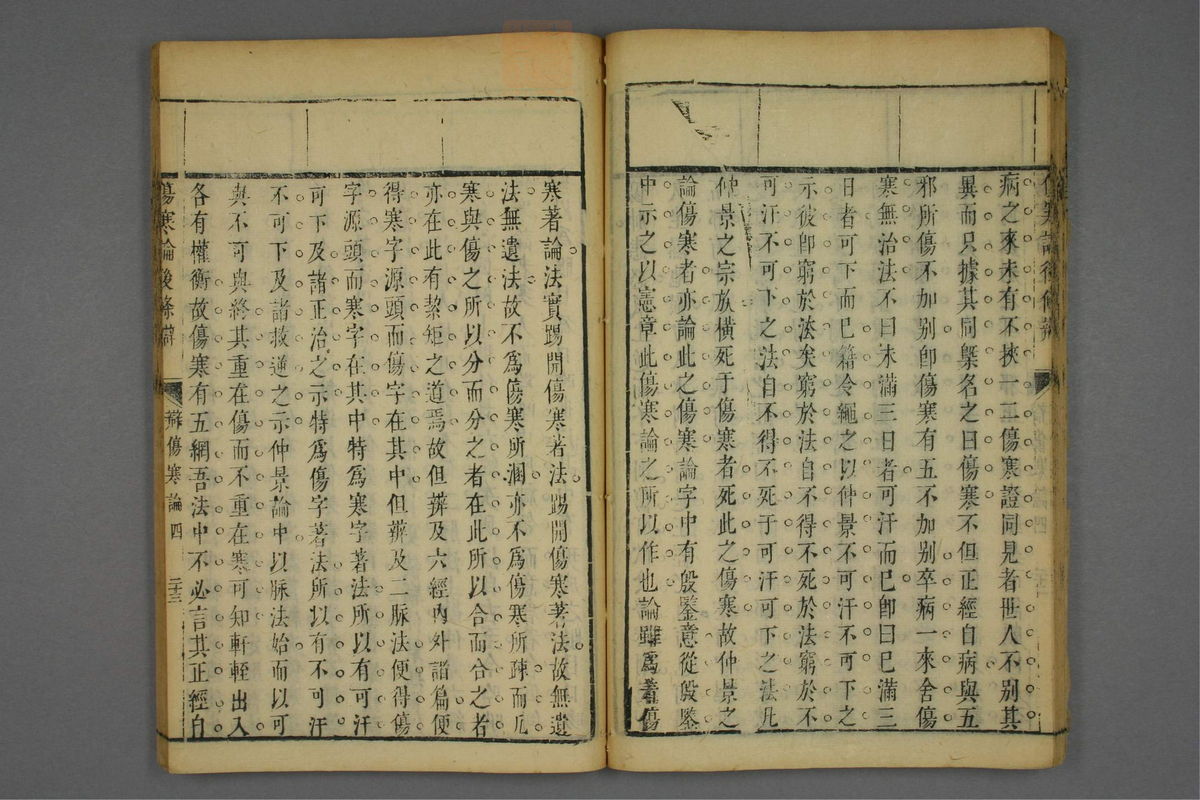 傷寒論後條辯
病之來未有不挾一二傷寒證同見者世人不别其
異而只據其同槩名之曰傷寒不但正經自病與五
邪所傷不加别卽傷寒有五不加别卒病一來舍傷
寒無治法不曰未滿三日者可汗而已卽曰已滿三
日者可下而已籍令繩之以仲景不可汗不可下之
示彼卽窮於法矣窮於法自不得不死於法窮於不
可汗不可下之法自不得不死于可汗可下之法凡
仲景之宗族橫死于傷寒者死此之傷寒故仲景之
論傷寒者亦論此之傷寒論字中有殷鑒意從殷鑒
中示之以憲章此傷寒論之所以作也論雖爲著傷
寒著論法實踢開傷寒著法踢開傷寒著法故無遺
法無遺法故不爲傷寒所溷亦不爲傷寒所踈而凡
寒與傷之所以分而分之者在此所以合而合之者
亦在此有絜矩之道焉故但辨及六經內外諸篇便
得寒字源頭而傷字在其中但辨及二脉法便得傷
字源頭而寒字在其中特爲寒字著法所以有可汗
可下及諸正治之示特爲傷字著法所以有不可汗
不可下及諸救逆之示仲景論中以脉法始而以可
與不可與終其重在傷而不重在寒可知軒輊出入
各有權衡故傷寒有五網吾法中不必言其正經自
傷寒論後條辯
辯傷寒論四
二十三